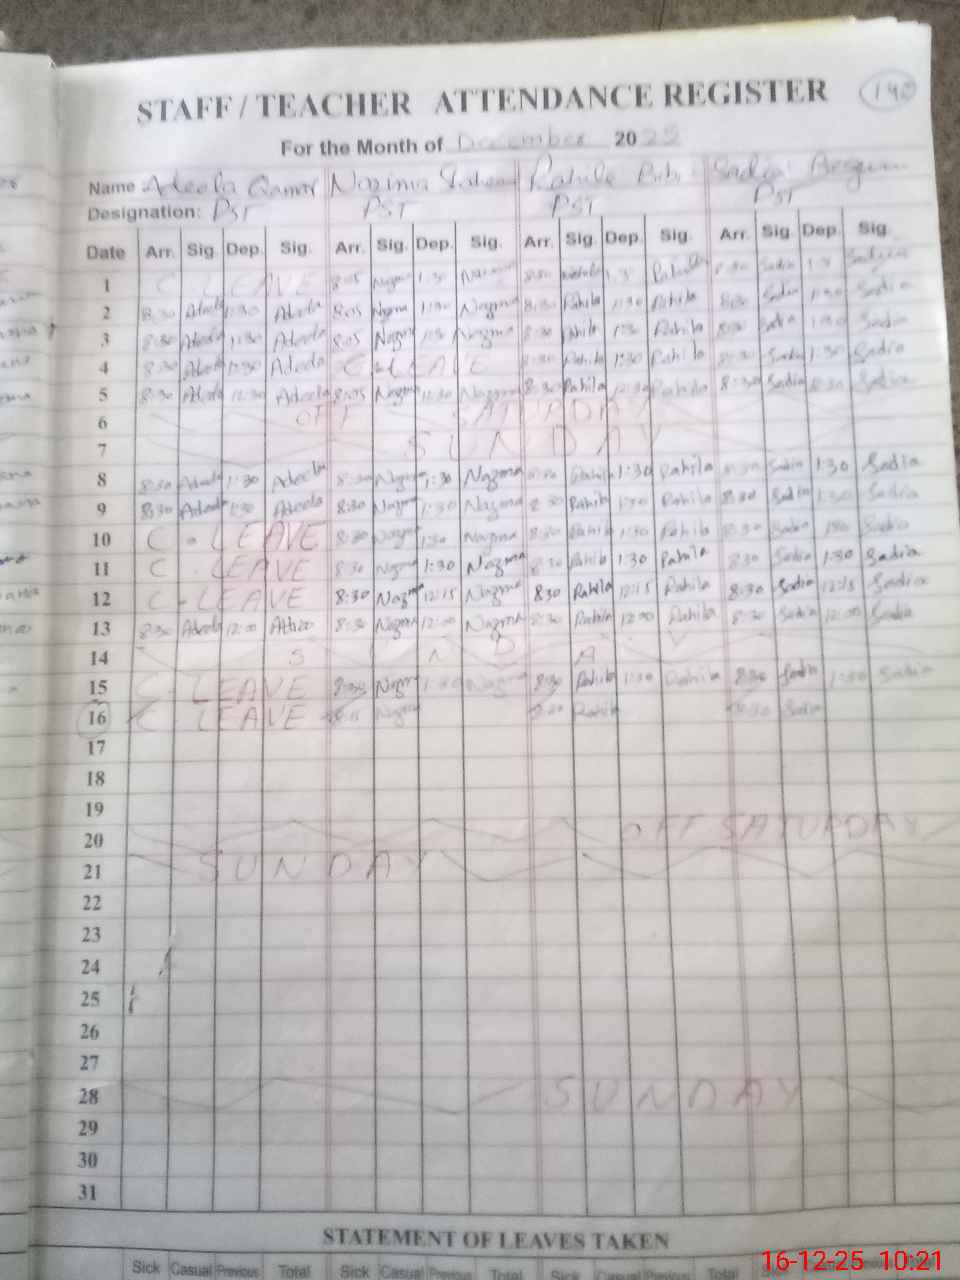 STAFF / TEACHER ATTENDANCE REGISTER 140
For the Month of December 2025
Name Adeela Qamar Nazima Shaheen Rahila Bibi Sadia Begum
Designation: PST PST PST PST
Date Arr. Sig. Dep. Sig. Arr. Sig. Dep. Sig. Arr. Sig. Dep. Sig. Arr. Sig. Dep. Sig.
1 C LEAVE 8:05 Nazma 1:30 Nazma 8:30 Rahila 1:30 Rahila 8:30 Sadia 1:30 Sadia
2 8:30 Adeela 1:30 Adeela 8:05 Nazma 1:30 Nazma 8:30 Rahila 1:30 Rahila 8:30 Sadia 1:30 Sadia
3 8:30 Adeela 1:30 Adeela 8:05 Nazma 1:30 Nazma 8:30 Rahila 1:30 Rahila 8:30 Sadia 1:30 Sadia
4 8:30 Adeela 1:30 Adeela C-LEAVE 8:30 Rahila 1:30 Rahila 8:30 Sadia 1:30 Sadia
5 8:30 Adeela 12:30 Adeela 8:05 Nazma 12:30 Nazma 8:30 Rahila 12:30 Rahila 8:30 Sadia 12:30 Sadia
6 OFF SATURDAY
7 SUNDAY
8 8:30 Adeela 1:30 Adeela 8:30 Nazma 1:30 Nazma 8:30 Rahila 1:30 Rahila 8:30 Sadia 1:30 Sadia
9 8:30 Adeela 1:30 Adeela 8:30 Nazma 1:30 Nazma 8:30 Rahila 1:30 Rahila 8:30 Sadia 1:30 Sadia
10 C-LEAVE 8:30 Nazma 1:30 Nazma 8:30 Rahila 1:30 Rahila 8:30 Sadia 1:30 Sadia
11 C-LEAVE 8:30 Nazma 1:30 Nazma 8:30 Rahila 1:30 Rahila 8:30 Sadia 1:30 Sadia
12 C-LEAVE 8:30 Nazma 12:15 Nazma 8:30 Rahila 12:15 Rahila 8:30 Sadia 12:15 Sadia
13 8:30 Adeela 12:00 8:30 Nazma 12:00 Nazma 8:30 Rahila 12:00 Rahila 8:30 Sadia 12:00 Sadia
14 S U N D A Y
15 C-LEAVE 8:30 Nazma 1:30 Nazma 8:30 Rahila 1:30 Rahila 8:30 Sadia 1:30 Sadia
16 C LEAVE Nazma 8:30 Rahila 8:30 Sadia
17
18
19
20 OFF SATURDAY
21 SUNDAY
22
23
24
25
26
27
28 SUNDAY
29
30
31
STATEMENT OF LEAVES TAKEN
Sick Casual Previous Total Sick Casual Previous Total Sick Casual Previous Total
16-12-25 10:21